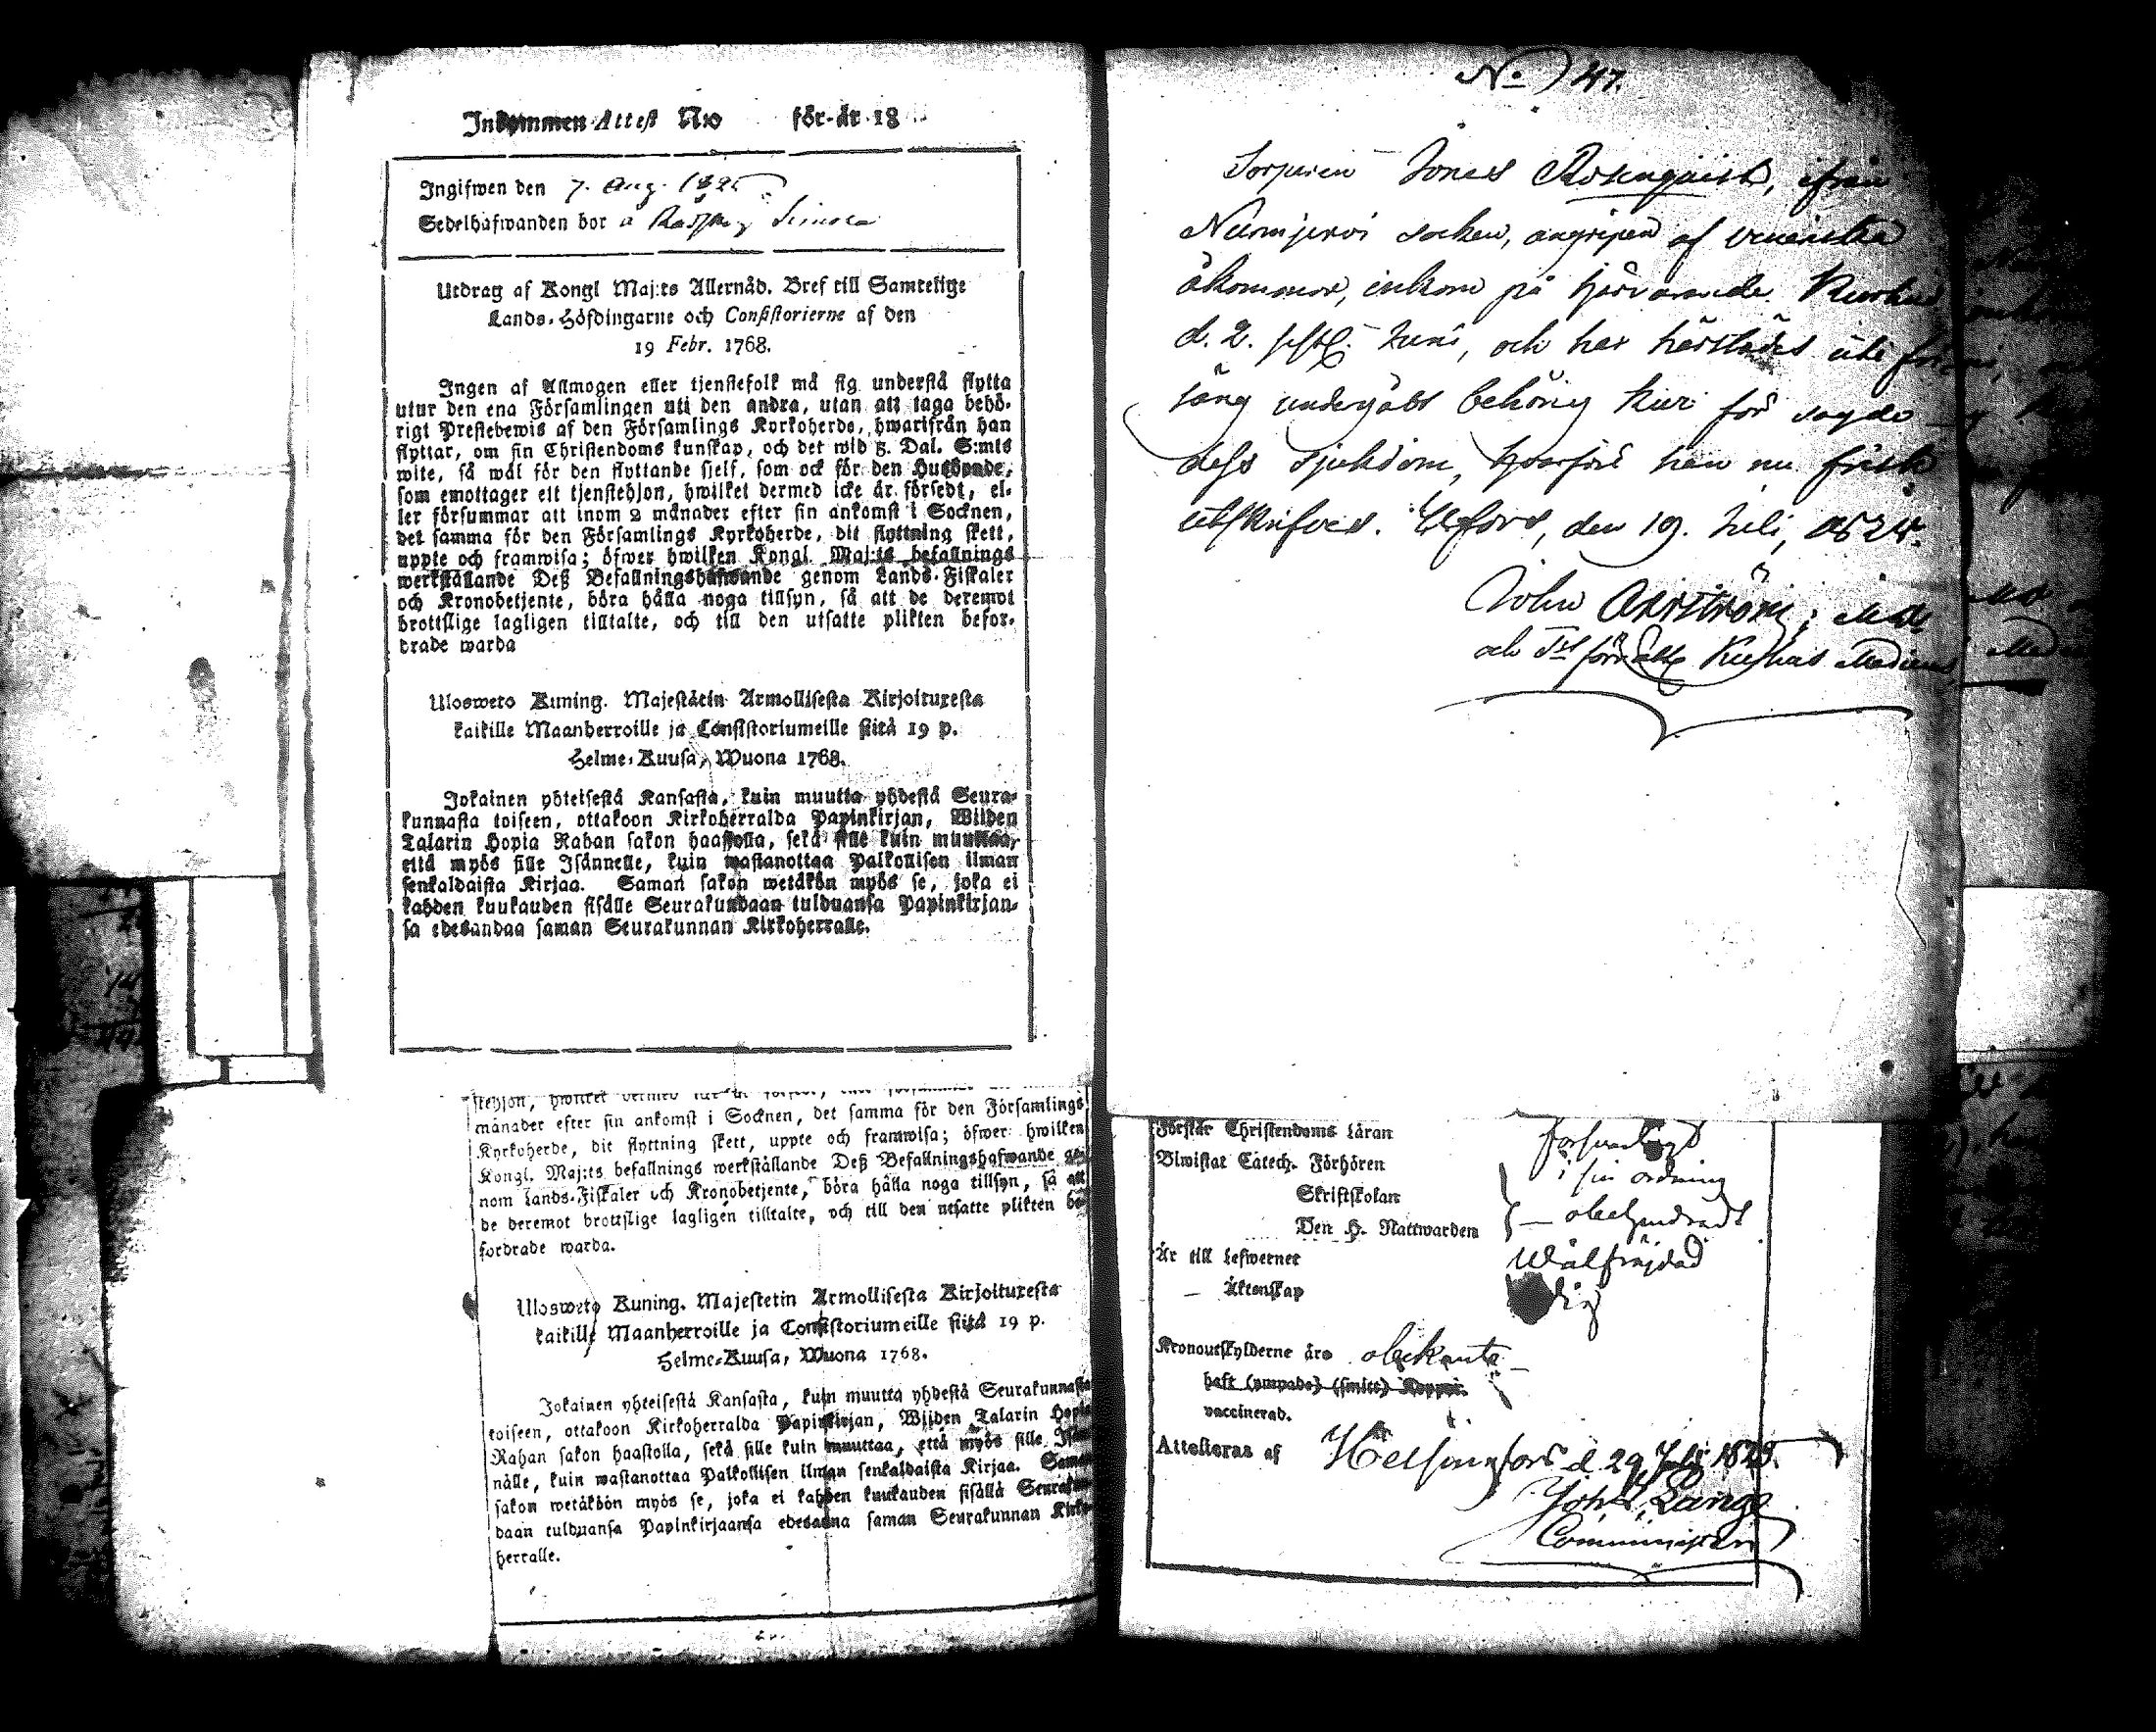 Inkommen Attest N:o för år 18
Ingifwen den 7. Aug. 1825
Sedelhafwanden bor å
Utdrag af Kongl Maj:ts Allernåd. Bref till Samtelige
Lands-Höfdingarne och Consistorierne af den
19 Febr. 1768.
Ingen af Allmogen eller tjenstefolk må sig understå flytta
utur den ena Församlingen uti den andra, utan att taga behö-
rigt Prestebewis af den Församlings Kyrkoherde, hwarifrån han
flyttar, om sin Christendoms kunskap, och det wid 5. Dal. S:mts
wite, så wäl för den flyttande sjelf, som ock för den Husbonde,
som emottager ett tjenstehjon, hwilket dermed icke är försedt, el-
ler försummar att inom 2 månader efter sin ankomst i Socknen,
det samma för den Församlings Kyrkoherde, dit flyttning skett,
uppte och framwisa; öfwer hwilken Kongl. Maj:ts befallnings
werkställande Deß Befallningshafwande genom Lands-Fiskaler
och Kronobetjente, böra hålla noga tillsyn, så att de deremot
brottslige lagligen tilltalte, och till den utsatte plikten befor-
drade warda
Ulosweto Kuning. Majestätin Armollisesta Kirjoituxesta
kaikille Maanherroille ja Consistoriumeille siitä 19 p.
Helme-Kuusa, Wuona 1768.
Jokainen yhteisestä Kansasta, kuin muutta yhdestä Seura-
kunnasta toiseen, ottakoon Kirkoherralda Papinkirjan, Wiiden
Talarin Hopia Rahan sakon haastolla, sekä sille kuin muuttaa,
että myös sille Isännelle, kuin wastanottaa Palkollisen ilman
senkaldaista Kirjaa. Saman sakon wetäkön myös se, joka ei
kahden kuukauden sisälle Seurakundaan tulduansa Papinkirjan-
sa edesandaa saman Seurakunnan Kirkoherralle.
månader efter sin ankomst i Socknen, det samma för den Församlings
Kyrkoherde, dit flyttning skett, uppte och framwisa; öfwer hwilken
Kongl. Maj:ts befallnings werkställande Deß Befallningshafwande ge-
nom Lands-Fiskaler och Kronobetjente, böra hålla noga tillsyn, så att
de deremot brottslige lagligen tilltalte, och till den utsatte plikten be-
fordrade warda.
Ulosweto Kuning. Majestetin Armollisesta Kirjoituxesta
kaikille Maanherroille ja Consistoriumeille siitä 19 p.
Helme-Kuusa, Wuona 1768.
Jokainen yhteisestä Kansasta, kuin muutta yhdestä Seurakunnasta
toiseen, ottakoon Kirkoherralda Papinkirjan, Wiiden Talarin Hopia
Rahan sakon haastolla, sekä sille kuin muuttaa, että myös sille Isän-
nälle, kuin wastanottaa Palkollisen ilman senkaldaista Kirjaa. Saman
sakon wetäköön myös se, joka ei kahden kuukauden sisällä Seurakun-
daan tulduansa Papinkirjaansa edesanna saman Seurakunnan Kirko-
herralle.
N:o 47.
Jonas Rosenqvist, ifrån
Nurmijervi socken, angripen af veneriska
åkommor, inkom på härvarande Kurhus
d. 2. sistl. Juni, och har härstädes uti fri
säng undergått behörig kur för sagde
dess sjukdom, hvarföre han nu frisk
utskrifves. H:fors, den 19. Juli, 1825.
John Åkerström; M.D.
och förrätt. Kurhus Medicus
Förstår Christendoms läran försvarligt
Biwistat Catech. Förhören i sin ordning
Skriftskolan
Den H. Nattwarden — obehindradt
Är till lefwernet Wälfräjdad
— Äktenskap ledig
Kronoutskylderne äro obekanta
haft (ympade) (smitt) Koppor.
vaccinerad.
Attesteras af Helsingfors d. 29 Juli 1825.
Joh. Lange
Comminister